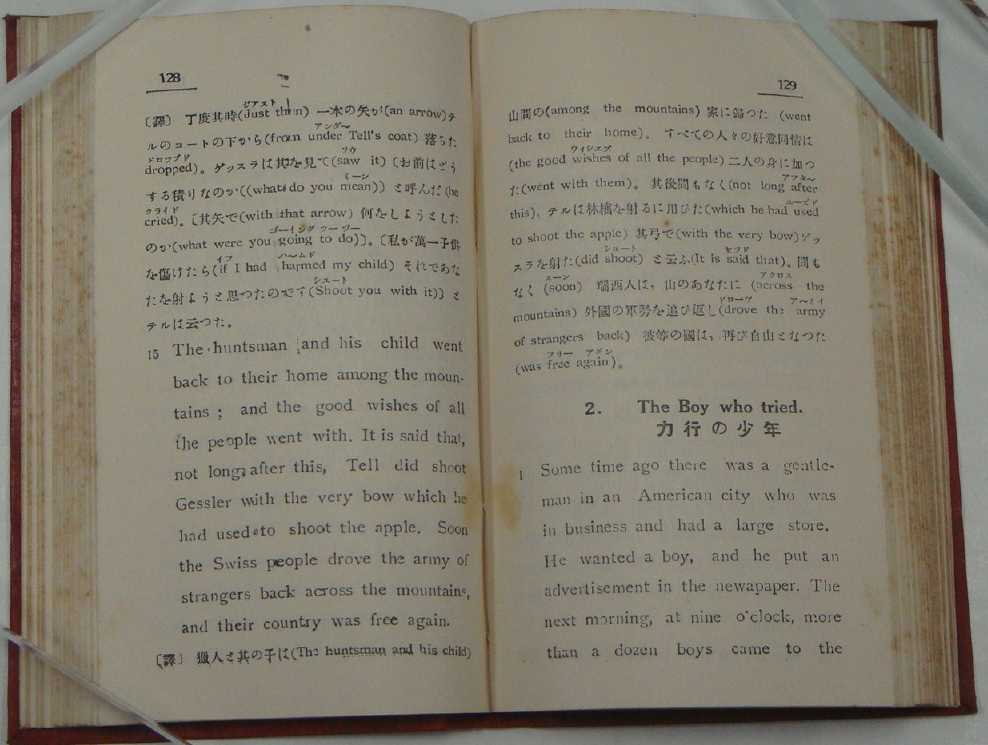 128
〔譯〕 丁度其時(Just then) 一本の矢が(an arrow)テ
ルのコートの下から(from under Tell's coat) 落ちた
dropped)。ゲッスラは其を見て(saw it)〔お前はどう
する積りなのか((what do you mean)〕と呼んだ(he
cried)。〔其矢で(with that arrow) 何をしようとした
のか(what were you going to do)〕。〔私が萬一子供
を傷けたら(if I had harmed my child) それであな
たを射ようと思つたのです(Shoot you with it)〕と
テルは云つた。
15 The huntsman and his child went
back to their home among the moun-
tains ; and the good wishes of all
the people went with. It is said that,
not long after this, Tell did shoot
Gessler with the very bow which he
had used to shoot the apple. Soon
the Swiss people drove the army of
strangers back across the mountains,
and their country was free again.
〔譯〕 獵人と其の子は(The huntsman and his child)
129
山間の(among the mountains) 家に歸つた (went
back to their home)。 すべての人々の好意同情は
(the good wishes of all the people) 二人の身に加つ
た(went with them)。 其後間もなく(not long after
this)、テルは林檎を射るに用ひた(which he had used
to shoot the apple) 其弓で(with the very bow)ゲッ
スラを射た(did shoot) と云ふ(It is said that)。間も
なく (soon) 瑞西人は、山のあなたに (across the
mountains) 外國の軍勢を追ひ返し(drove the army
of strangers back) 彼等の國は、再び自由となつた
(was free again)。
2. The Boy who tried.
力行の少年
1 Some time ago there was a gentle-
man in an American city who was
in business and had a large store.
He wanted a boy, and he put an
advertisement in the newapaper. The
next morning, at nine o'clock, more
than a dozen boys came to the